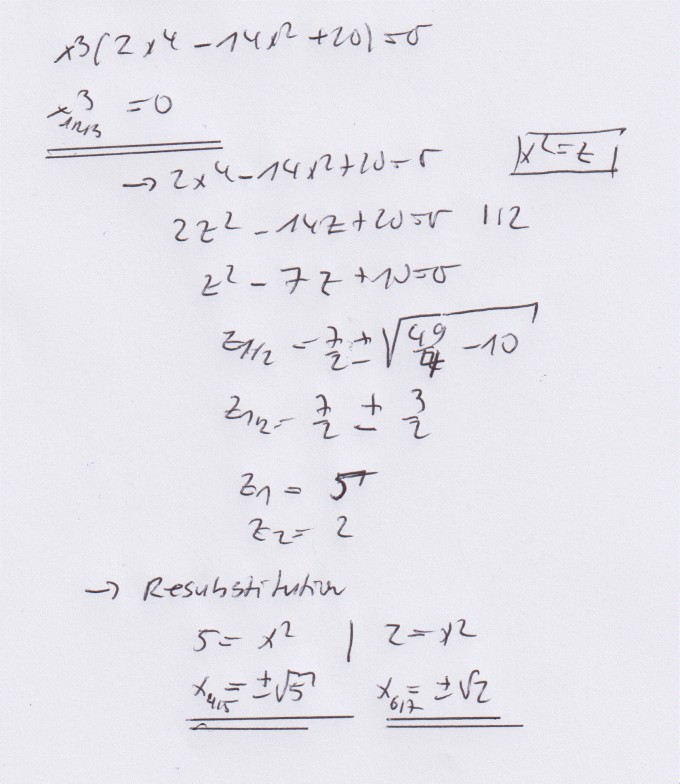 x³(2x⁴ - 14x² + 20) = 0
x³₁,₂,₃ = 0
→ 2x⁴ - 14x² + 20 = 0 |x² = z|
2z² - 14z + 20 = 0 |:2
z² - 7z + 10 = 0
z₁/₂ = 7/2 ± √(49/4 - 10)
z₁/₂ = 7/2 ± 3/2
z₁ = 5
z₂ = 2
→ Resubstitution
5 = x² | 2 = x²
x₄,₅ = ±√5 x₆,₇ = ±√2